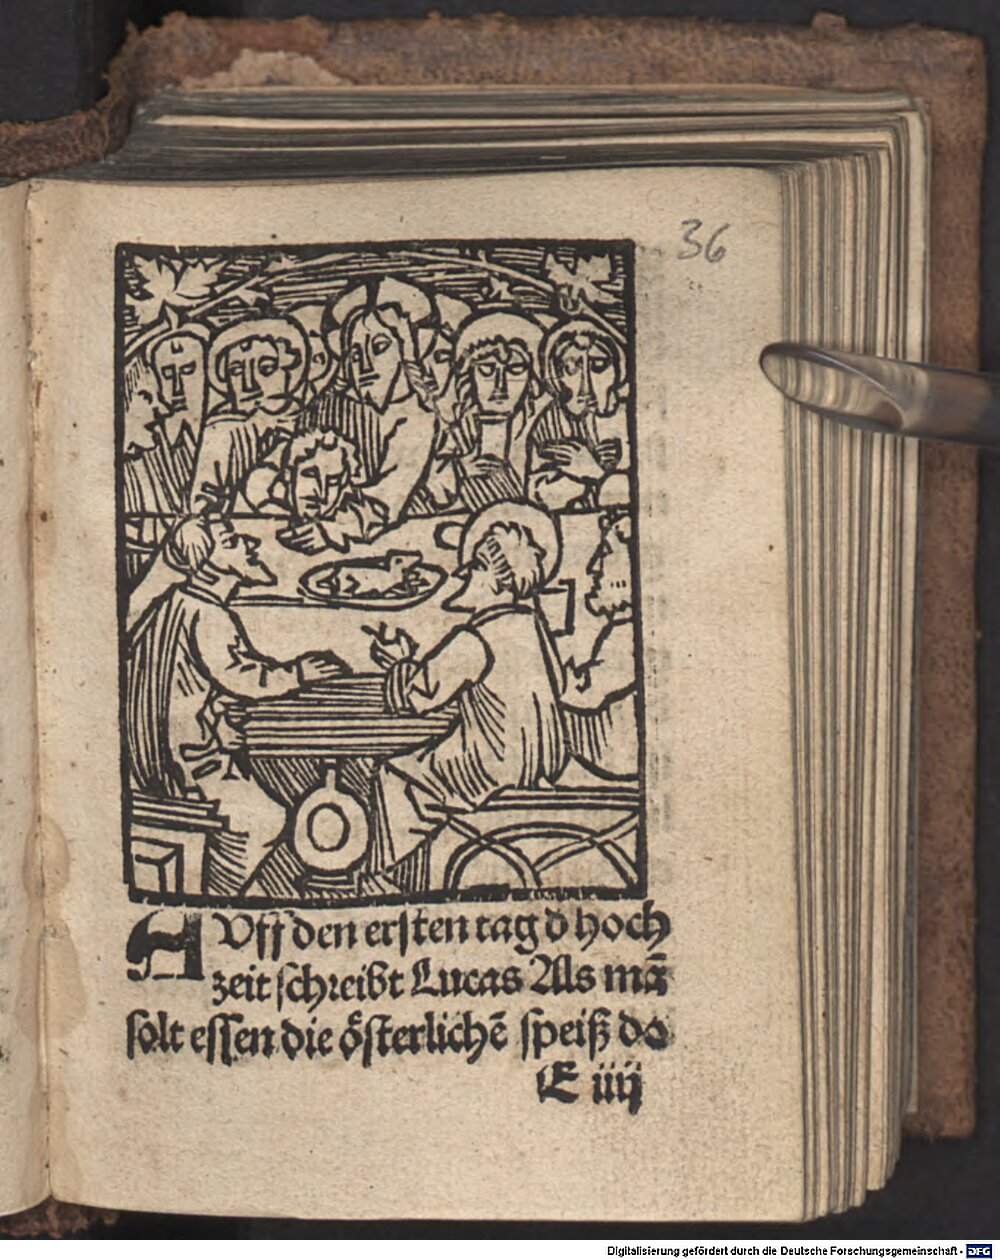 36
AUff den ersten tag d̕ hoch
zeit schreibt Lucas Als mā
solt essen die oͤsterlichē speiß do
E iiij
Digitalisierung gefördert durch die Deutsche Forschungsgemeinschaft - DFG